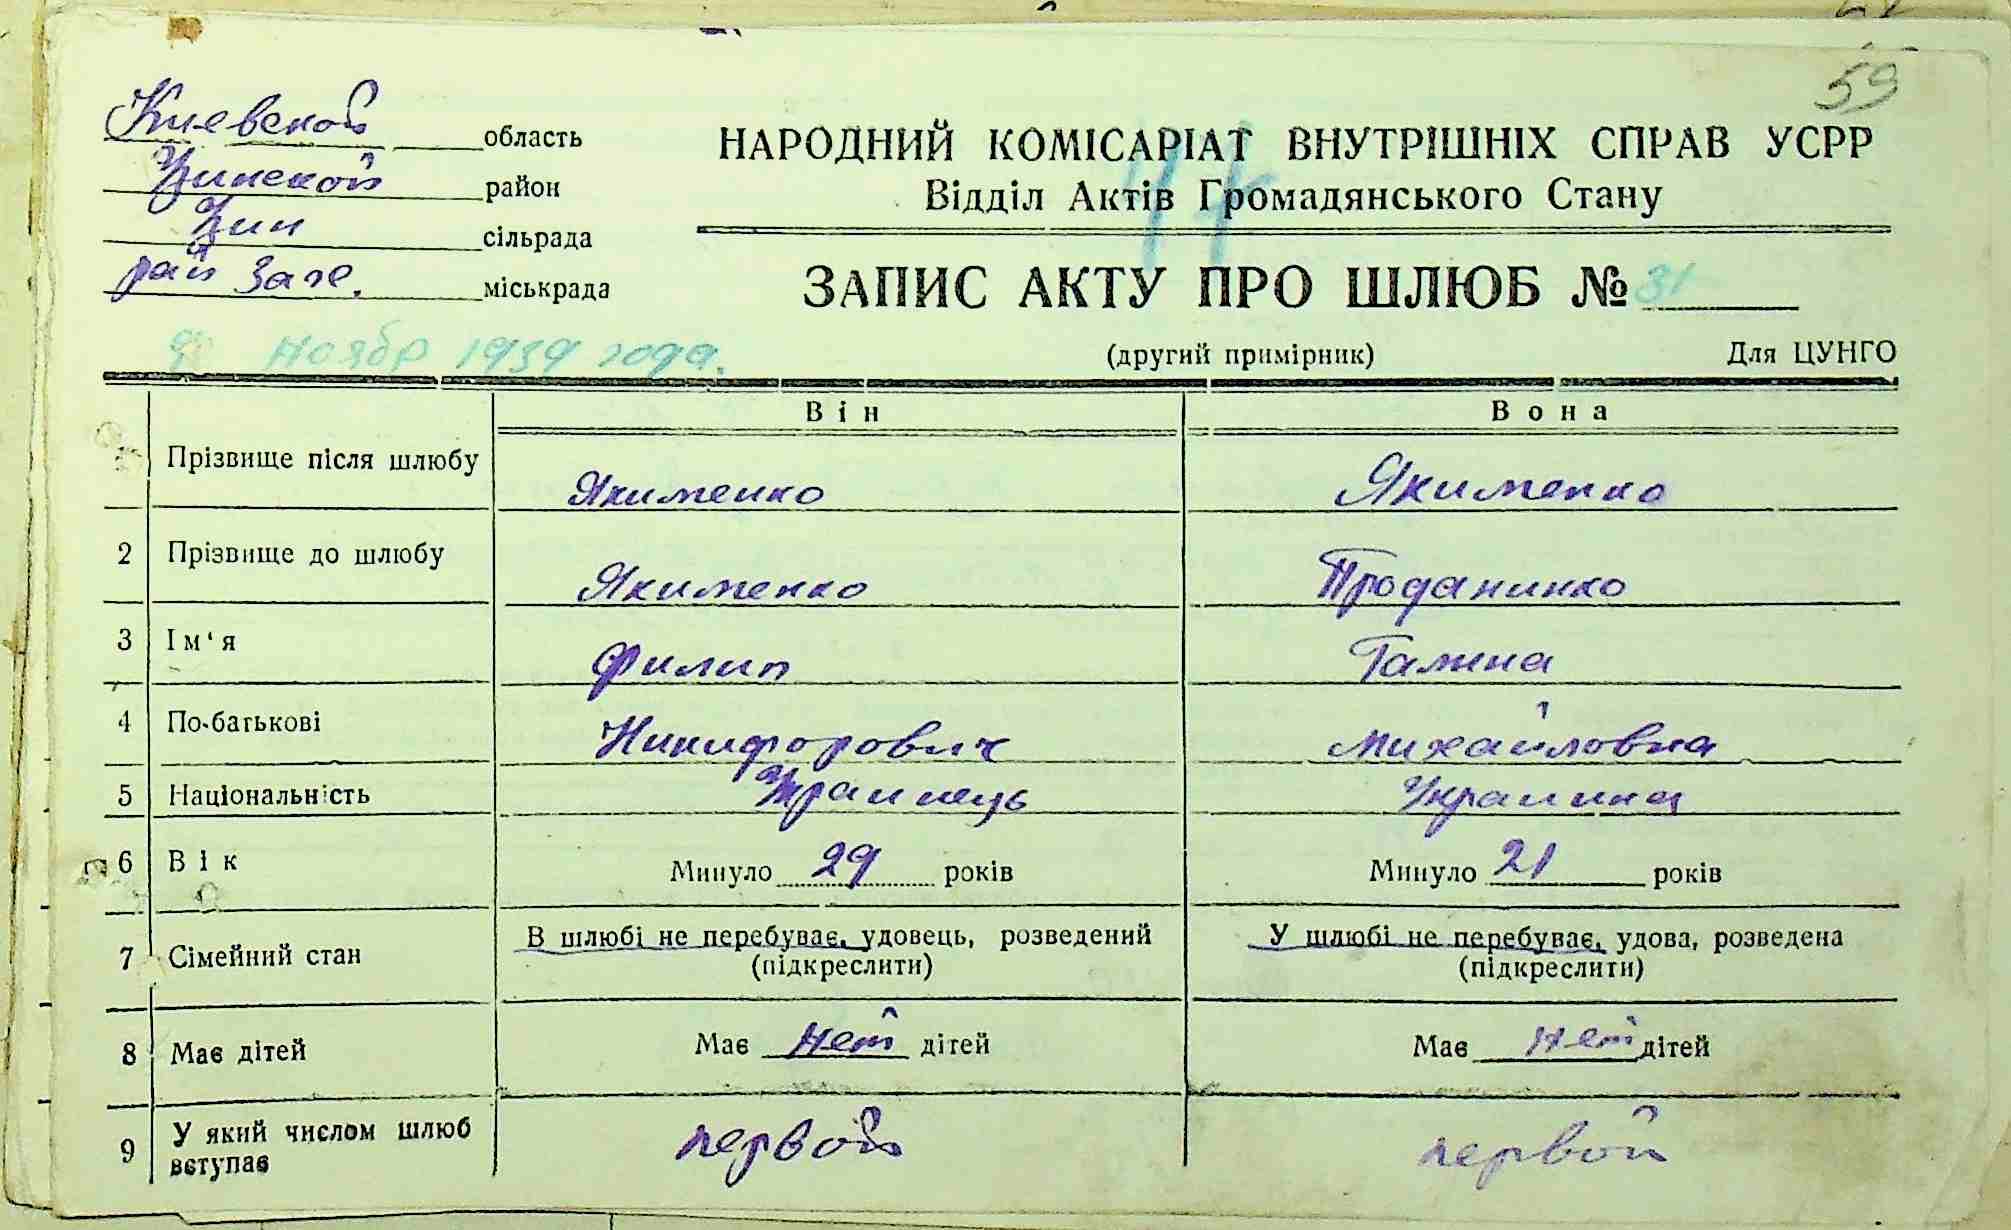 59
Киевской область
район
сільрада
рай загс. міськрада
НАРОДНИЙ КОМІСАРІАТ ВНУТРІШНІХ СПРАВ УСРР
Відділ Актів Громадянського Стану
ЗАПИС АКТУ ПРО ШЛЮБ № 31
Ноябр 1939 года.
(другий примірник) Для ЦУНГО
Він Вона
Прізвище після шлюбу Якименко Якименко
2 Прізвище до шлюбу Якименко Проданинко
3 Ім'я Филип Галина
4 По-батькові Никифорович Михайловна
5 Національність Украинець Украинка
6 Вік Минуло 29 років Минуло 21 років
7 Сімейний стан В шлюбі не перебуває, удовець, розведений У шлюбі не перебуває, удова, розведена
(підкреслити) (підкреслити)
8 Має дітей Має нет дітей Має нет дітей
9 У який числом шлюб вступає первой первой